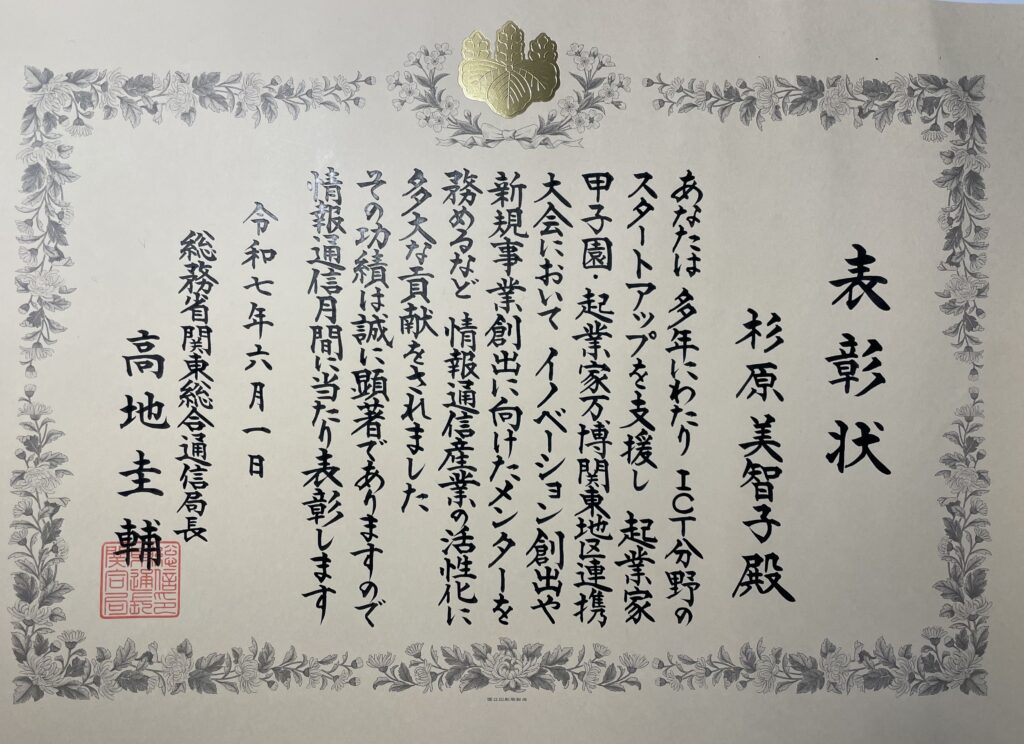 表彰状
杉原美智子殿
あなたは 多年にわたり ICT分野の
スタートアップを支援し 起業家
甲子園・起業家万博関東地区連携
大会において イノベーション創出や
新規事業創出に向けたメンターを
務めるなど 情報通信産業の活性化に
多大な貢献をされました
その功績は誠に顕著でありますので
情報通信月間に当たり表彰します
令和七年六月一日
総務省関東総合通信局長
高地圭輔